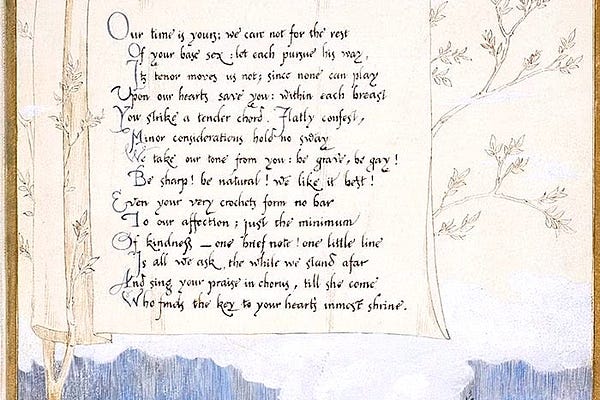 Our time is yours; we care not for the rest
Of your base sex: let each pursue his way,
Its tenor moves us not; since none can play
Upon our hearts save you: within each breast
You strike a tender chord. Flatly confest,
Minor considerations hold no sway
We take our tone from you: be grave, be gay!
Be sharp! be natural! we like it best!
Even your very crochets form no bar
To our affection; just the minimum
Of kindness — one brief note! one little line
Is all we ask, the while we stand afar
And sing your praise in chorus, till she come
Who finds the key to your hearts inmost shrine.